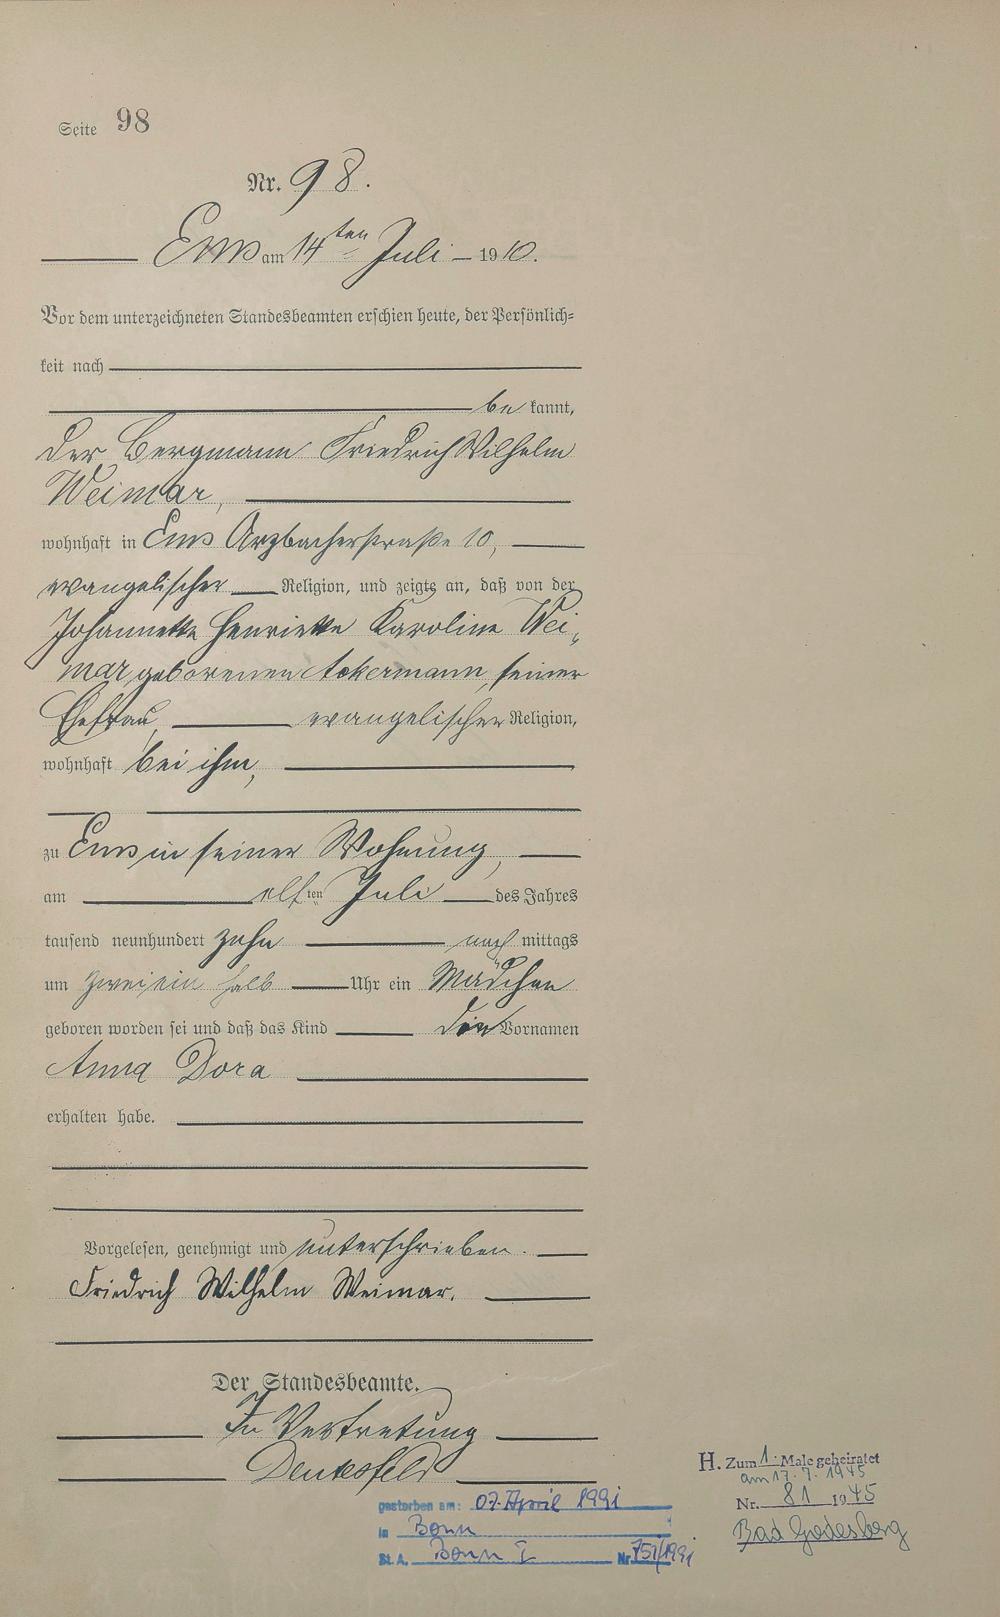 Seite 98
Nr. 98.
Ems am 14ten Juli 1910.
Vor dem unterzeichneten Standesbeamten erschien heute, der Persönlich=
keit nach
be kannt,
der Bergmann Friedrich Wilhelm
Weimar,
wohnhaft in Ems Arzbacherstraße 10,
evangelischer Religion, und zeigte an, daß von der
Johannette Henriette Karoline Wei„
mar geborenen Ackermann, seiner
Ehefrau, evangelischer Religion,
wohnhaft bei ihm,
zu Ems in seiner Wohnung,
am elften Juli des Jahres
tausend neunhundert zehn nach mittags
um zwei ein halb Uhr ein Mädchen
geboren worden sei und daß das Kind den Vornamen
Anna Dora
erhalten habe.
Vorgelesen, genehmigt und unterschrieben.
Friedrich Wilhelm Weimar.
Der Standesbeamte.
In Vertretung
H. Zum 1. Male geheiratet
am 17.7.1945
Nr. 81 1945
Bad Godesberg
gestorben am: 07. April 1991
in Bonn
St. A. Bonn I Nr. 751/1991